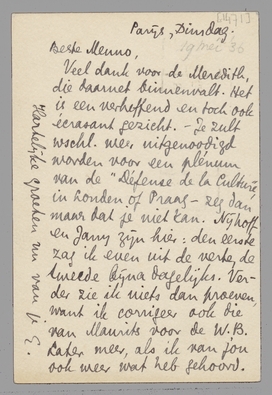 [1471]
Parijs, Dinsdag.
19 mei 36
Beste Menno,
Veel dank voor de Meredith,
die daarnet binnenvalt. Het
is een verheffend en toch ook
écrasant gezicht. – Je zult
wschl. weer uitgenoodigd
worden voor een plénum
van de "Défense de la Culture
in Londen of Praag – zeg dan
maar dat je niet kan. Nijhoff
en Jany zijn hier: den eerste
zag ik even uit de verte, de
tweede bijna dagelijks. Ver-
der zie ik niets dan proeven,
want ik corrigeer ook die
van Maurits voor de W.B.
Later meer, als ik van jou
ook weer wat heb gehoord.
Hartelijke groeten en van je E.